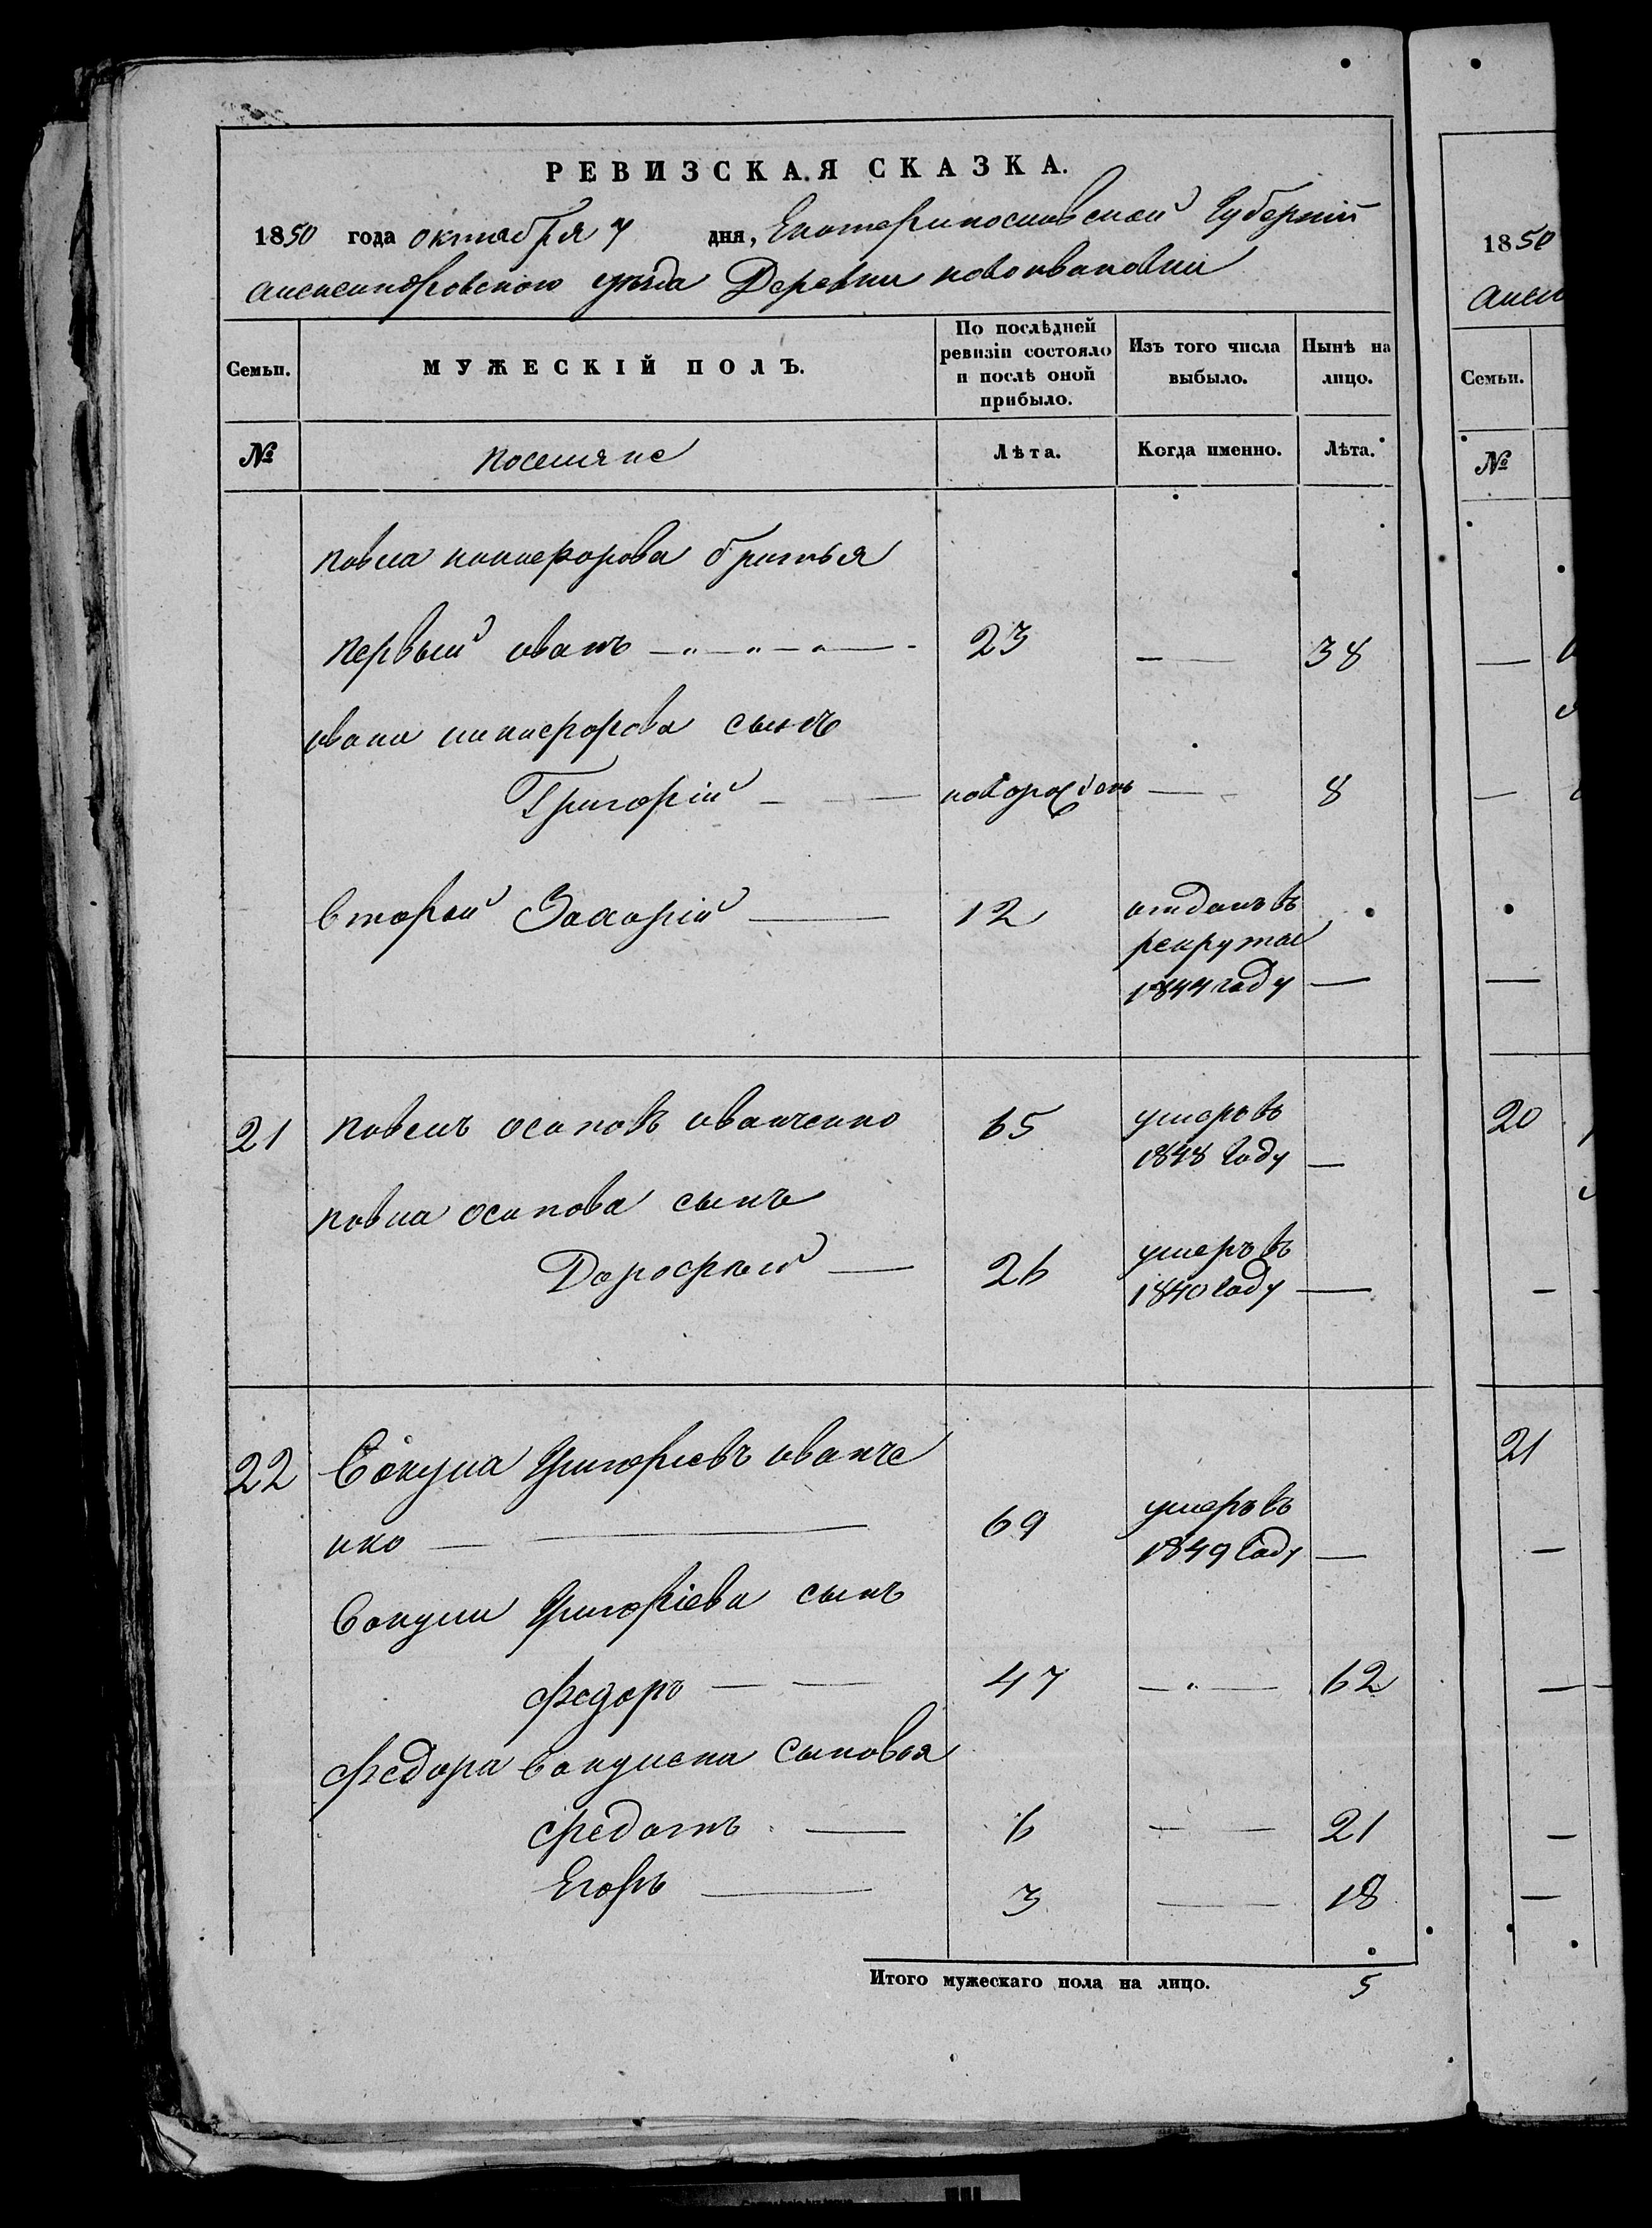 РЕВИЗСКАЯ СКАЗКА.
1850 года октября 7 дня, Екатеринославской Губернии
Александровского уезда Деревни новоивановки
Семьи.
МУЖЕСКІЙ ПОЛЪ.
По послѣдней ревизіи состояло и послѣ оной прибыло.
Изъ того числа выбыло.
Нынѣ на лицо.
№
поселяне
Лѣта.
Когда именно.
Лѣта.
павла никифорова братья
первый иванъ 23 — 38
ивана никифорова сынъ
Григорій новорожденъ — 8
второй Захарій 12 отданъ въ
рекруты
1844 году —
21 павелъ осиповъ иванченко 65 умеръ въ
1848 Году —
павла осипова сынъ
Дорофей — 26 умеръ въ
1840 Году —
22 Вакула Григориевъ иванче
нко — 69 умеръ въ
1849 Году —
Вакулы Григоріева сынъ
Федоръ — 47 — 62
Федора Вакулена сыновья
федотъ — 6 — 21
Егоръ — 3 — 18
Итого мужескаго пола на лицо. 5
1850
Алек
Семьи.
№
20
21